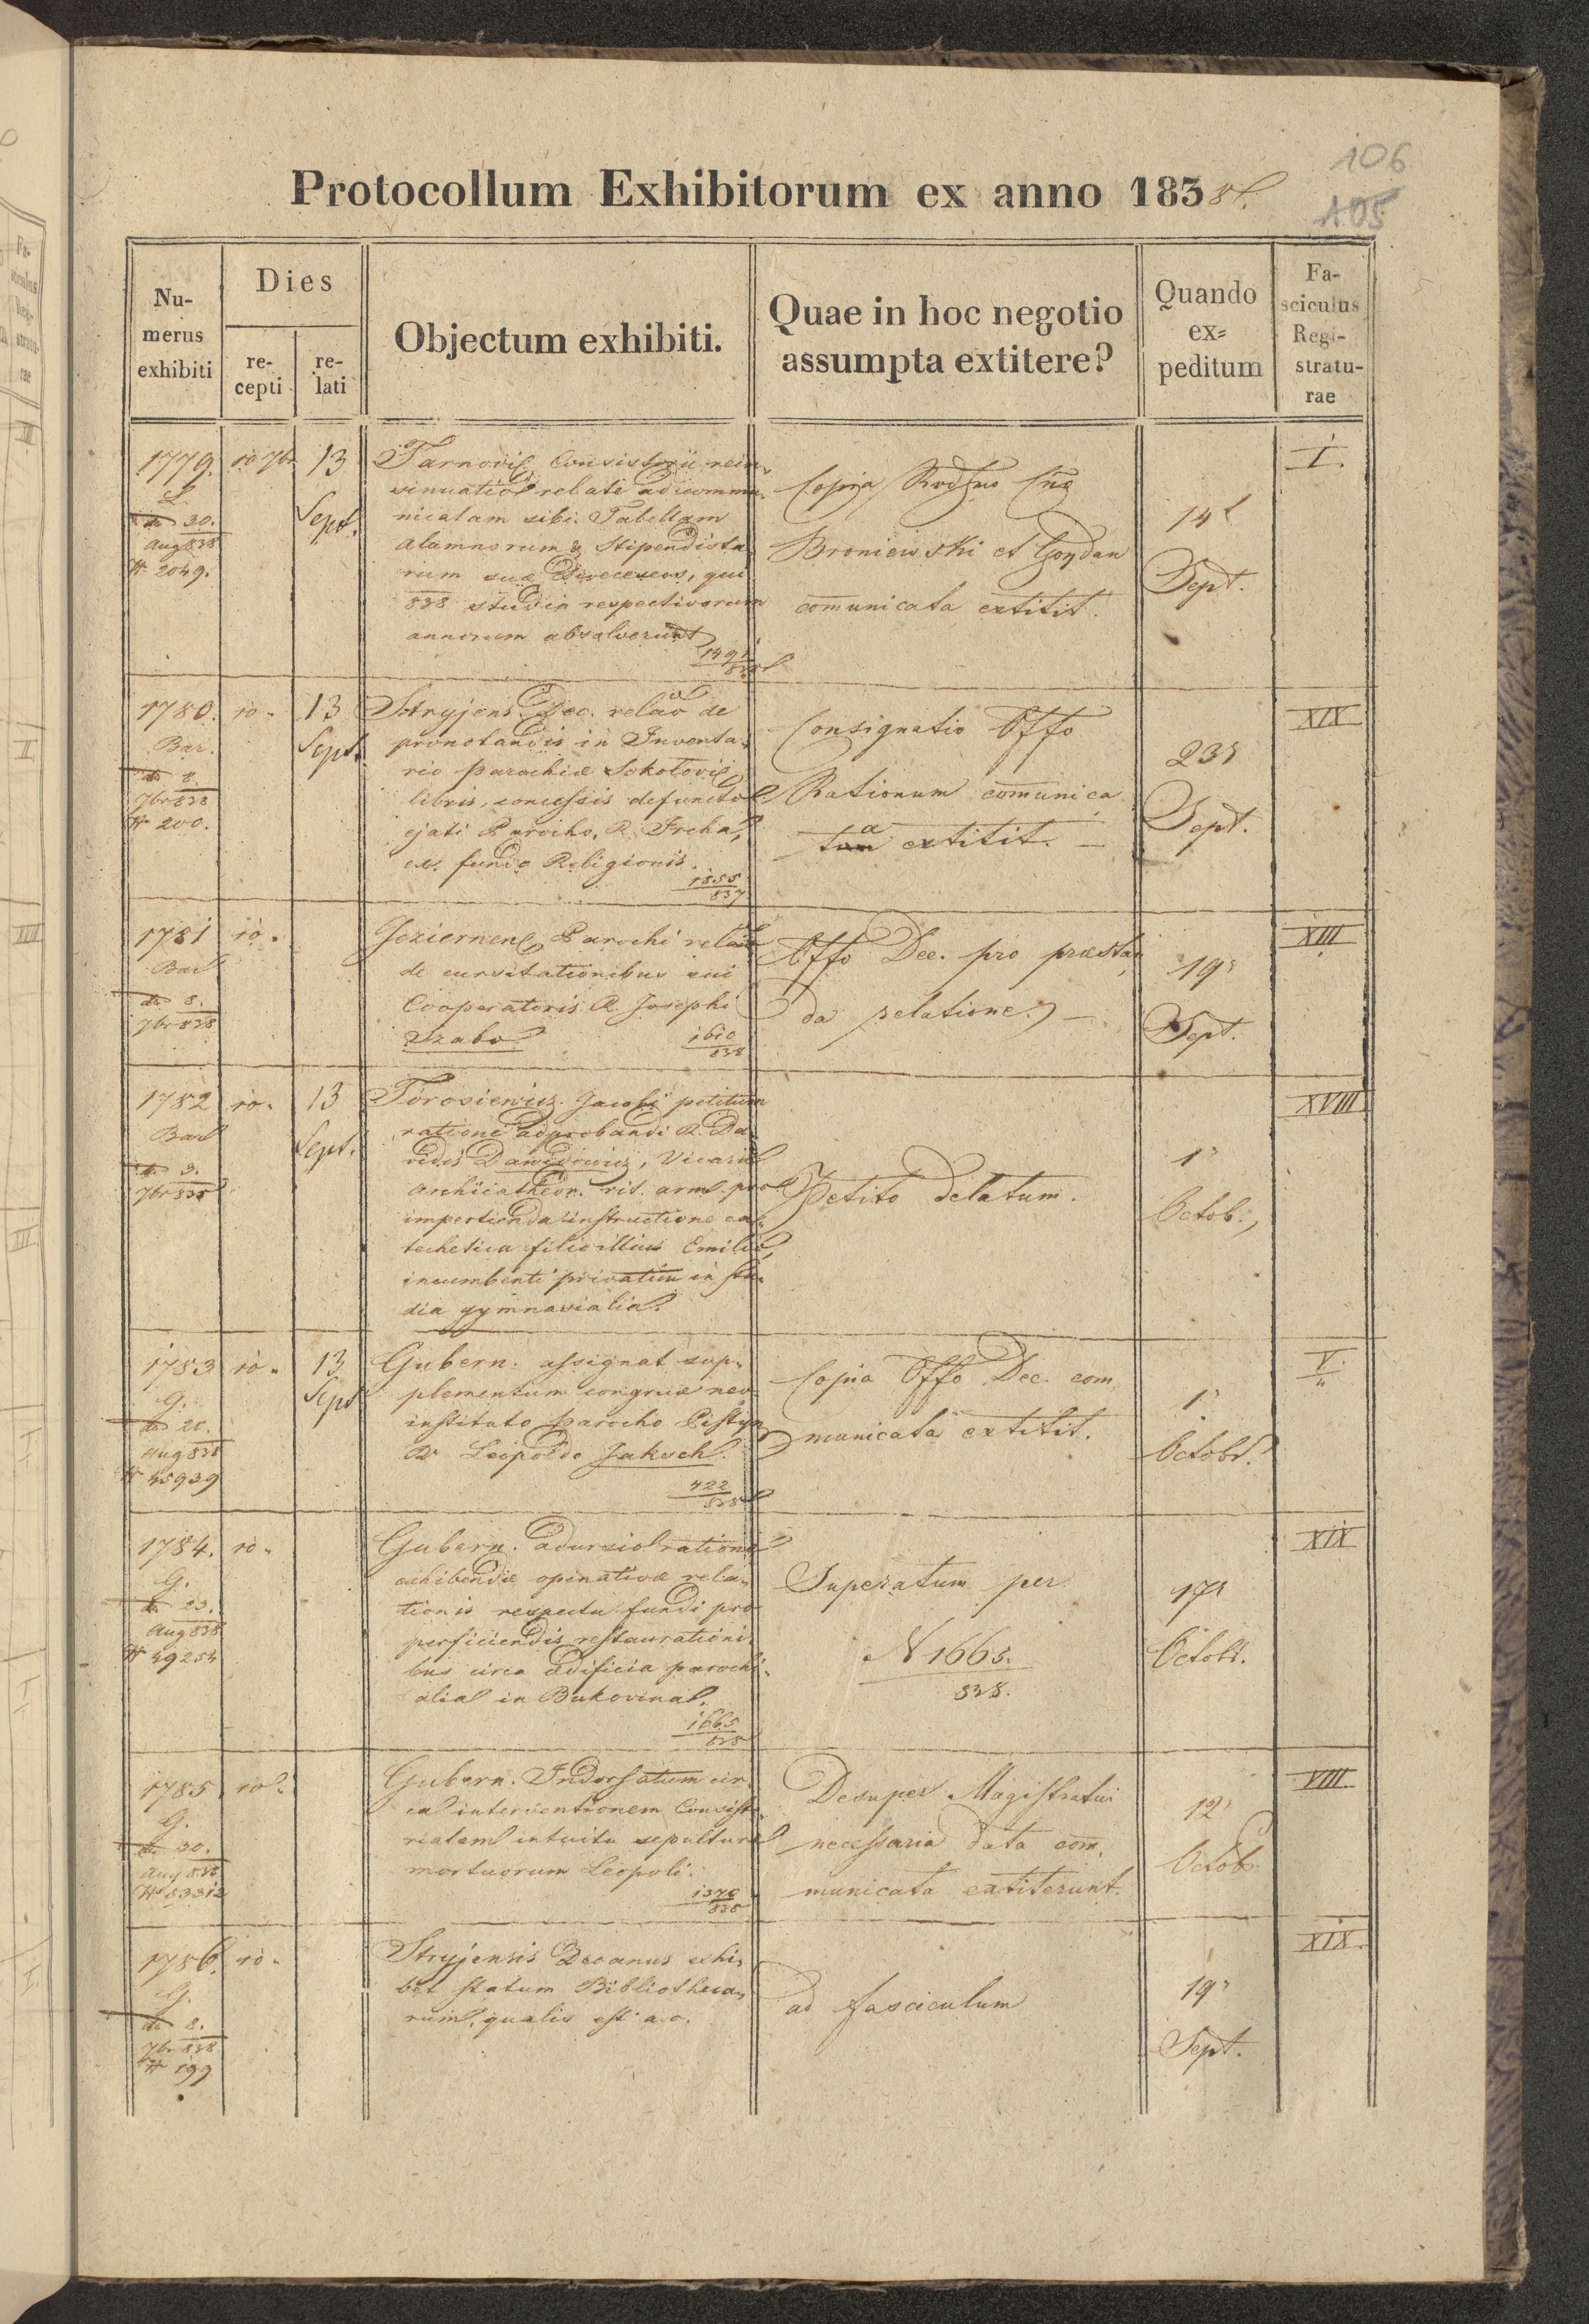 106
105
Protocollum Exhibitorum ex anno 1838.
Nu-
merus
exhibiti
Dies
re-
cepti
re-
lati
Objectum exhibiti.
Quae in hoc negotio
assumpta extitere?
Quando
ex=
peditum
Fa-
sciculus
Regi-
stratu-
rae
1779.
30.
Aug 838
# 2049.
10 7br
13
Sept.
Tarnovie Consistorii rein-
sinuatio relate ad commu-
nicatam sibi Tabellam
alumnorum & Stipendista-
rum suae Dioeceseos, qui
838 studia respectivorum
annorum absolverunt
1491
838
Copia
Broniewski et
comunicata extitit.
14
Sept.
I.
1780.
Bar.
do 8.
7br 838
# 200.
10.
13
Sept.
Stryjens. Dec. relao de
pronotandis in Inventa-
rio parochiae Sokolovie
libris, concessis defuncto
ejati Parocho, R. Treha,
ex fundo Religionis.
1855
837
Consignatio Offo
Rationum comunica
ta extitit. —
23
Sept.
XIX
1781
Bar
do 8.
7br 838
10.
Jeziernen Parochi relao
de cursitationibus sui
Cooperatoris R. Josephi
Szabo
1610
838
Offo Dec. pro praestan
da relatione. —
19
Sept.
XIII
1782
Bar
do 3.
7br 838
10.
13
Sept.
Torosiewicz Jacobi petitum
ratione adprobandi R. Da-
vidis Dawidowicz, Vicarii
Archicathedr. rit. arm. pro
impertienda instructione ca-
techetica filio illius Emilio,
incumbenti privatim in stu-
dia gymnasialia.
Petito delatum.
1
Octob.
XVIII
1783
G.
do 20.
Aug 838
# 45939
10.
13
Sept
Gubern. assignat sup-
plementum congruae neo
instituto parocho Pistyn
R. Leopoldo Jaksch.
422
838
Copia Offo Dec. com
municata extitit.
1
Octobr.
V.
1784.
G.
do 23.
Aug 838
# 49254
10.
Gubern. adursio ratione
exhibendae opinativae rela-
tionis respectu fundi pro
perficiendis restaurationi-
bus circa aedificia parochi-
alia in Bukovina.
1665
838
Superatum per
N 1665.
838.
17
Octobr.
XIX
1785
G.
do 30.
Aug 838
# 53312
10
Gubern. Indorsatum cir-
ca interventionem Consisto-
rialem intuitu sepulturae
mortuorum Leopoli.
1370
838
Desuper Magistratui
necessaria data com.
municata extiterunt.
12
Octob.
VIII
1786.
G.
do 8.
7br 838
# 199
10.
Stryjensis Decanus exhi-
bet statum Bibliotheca-
rum, qualis est a. c.
ad fasciculum
19
Sept.
XIX.